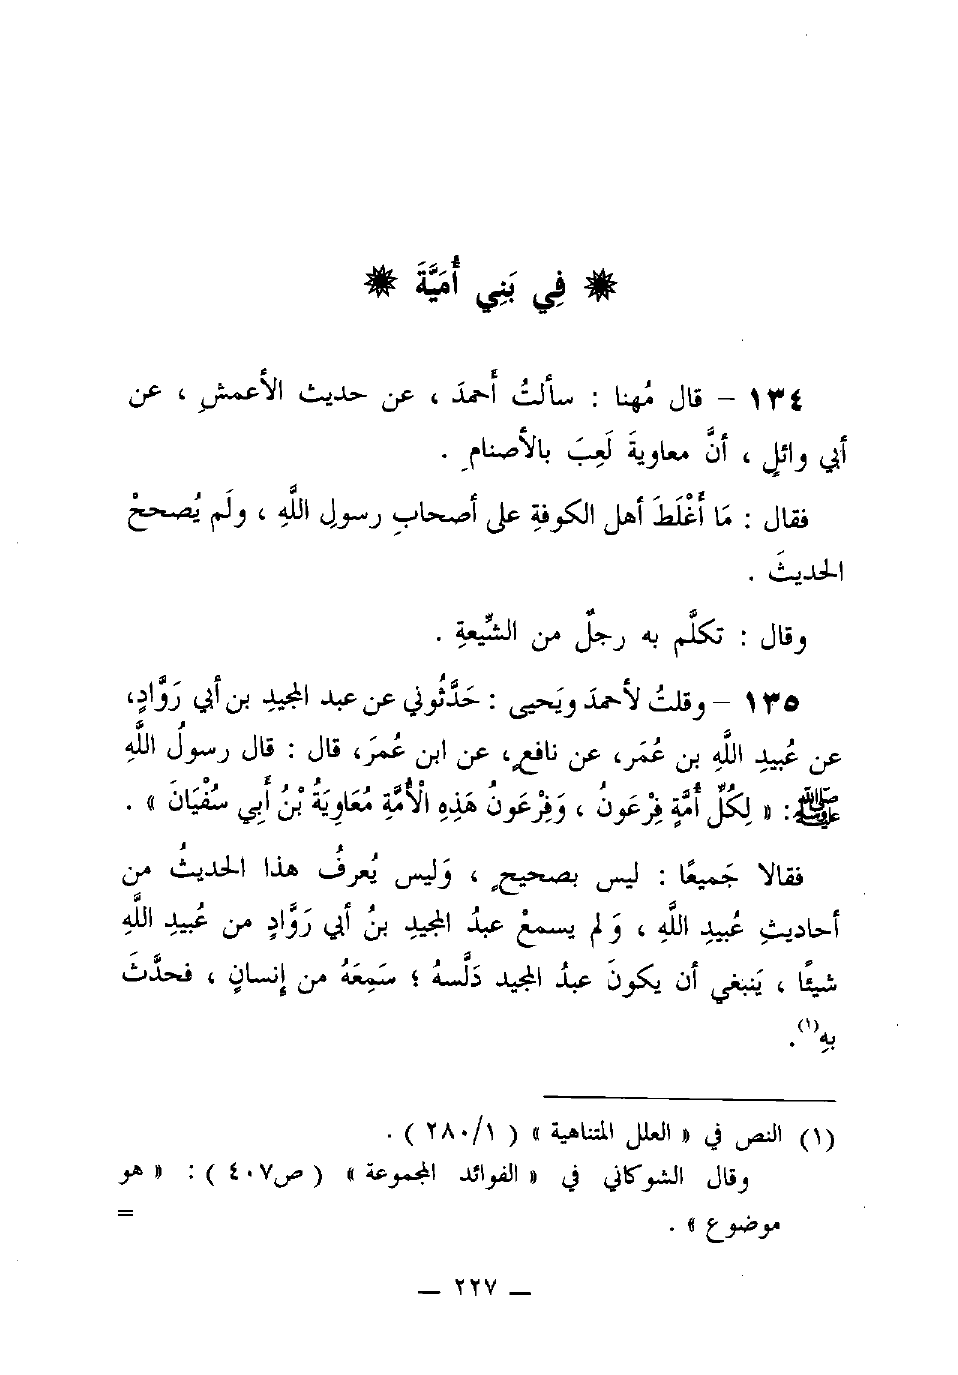 ❋ فِي بَنِي أُمَيَّةَ ❋
١٣٤ – قال مُهنا : سألتُ أَحمدَ ، عن حديث الأعمشِ ، عن
أبي وائلٍ ، أنَّ معاويةَ لَعِبَ بالأصنامِ .
فقال : مَا أَغْلَطَ أهل الكوفةِ على أصحابِ رسولِ اللَّهِ ، ولَم يُصححْ
الحَديثَ .
وقال : تكلَّم به رجلٌ من الشِّيعةِ .
١٣٥ – وقلتُ لأحمدَ ويَحيى : حَدَّثُوني عن عبد المجيدِ بن أبي رَوَّادٍ،
عن عُبيدِ اللَّهِ بن عُمَر، عن نافعٍ، عن ابن عُمرَ، قال : قال رسولُ اللَّهِ
ﷺ: « لِكُلِّ أُمَّةٍ فِرْعَونُ ، وَفِرْعَونُ هَذِهِ الْأُمَّةِ مُعَاوِيَةُ بْنُ أَبِي سُفْيَانَ » .
فقالا جَميعًا : ليس بصحيحٍ ، وَليس يُعرفُ هذا الحَديثُ من
أحاديثِ عُبيدِ اللَّهِ ، وَلم يسمعْ عبدُ المجيدِ بنُ أبي رَوَّادٍ من عُبيدِ اللَّهِ
شيئًا ، يَنبغي أن يكونَ عبدُ المجيد دَلَّسهُ ؛ سَمِعَهُ من إِنسانٍ ، فحدَّثَ
بهِ(١).
(١) النص في « العلل المتناهية » ( ٢٨٠/١ ) .
وقال الشوكاني في « الفوائد المجموعة » ( ص٤٠٧ ) : « هو
موضوع » .
=
— ٢٢٧ —